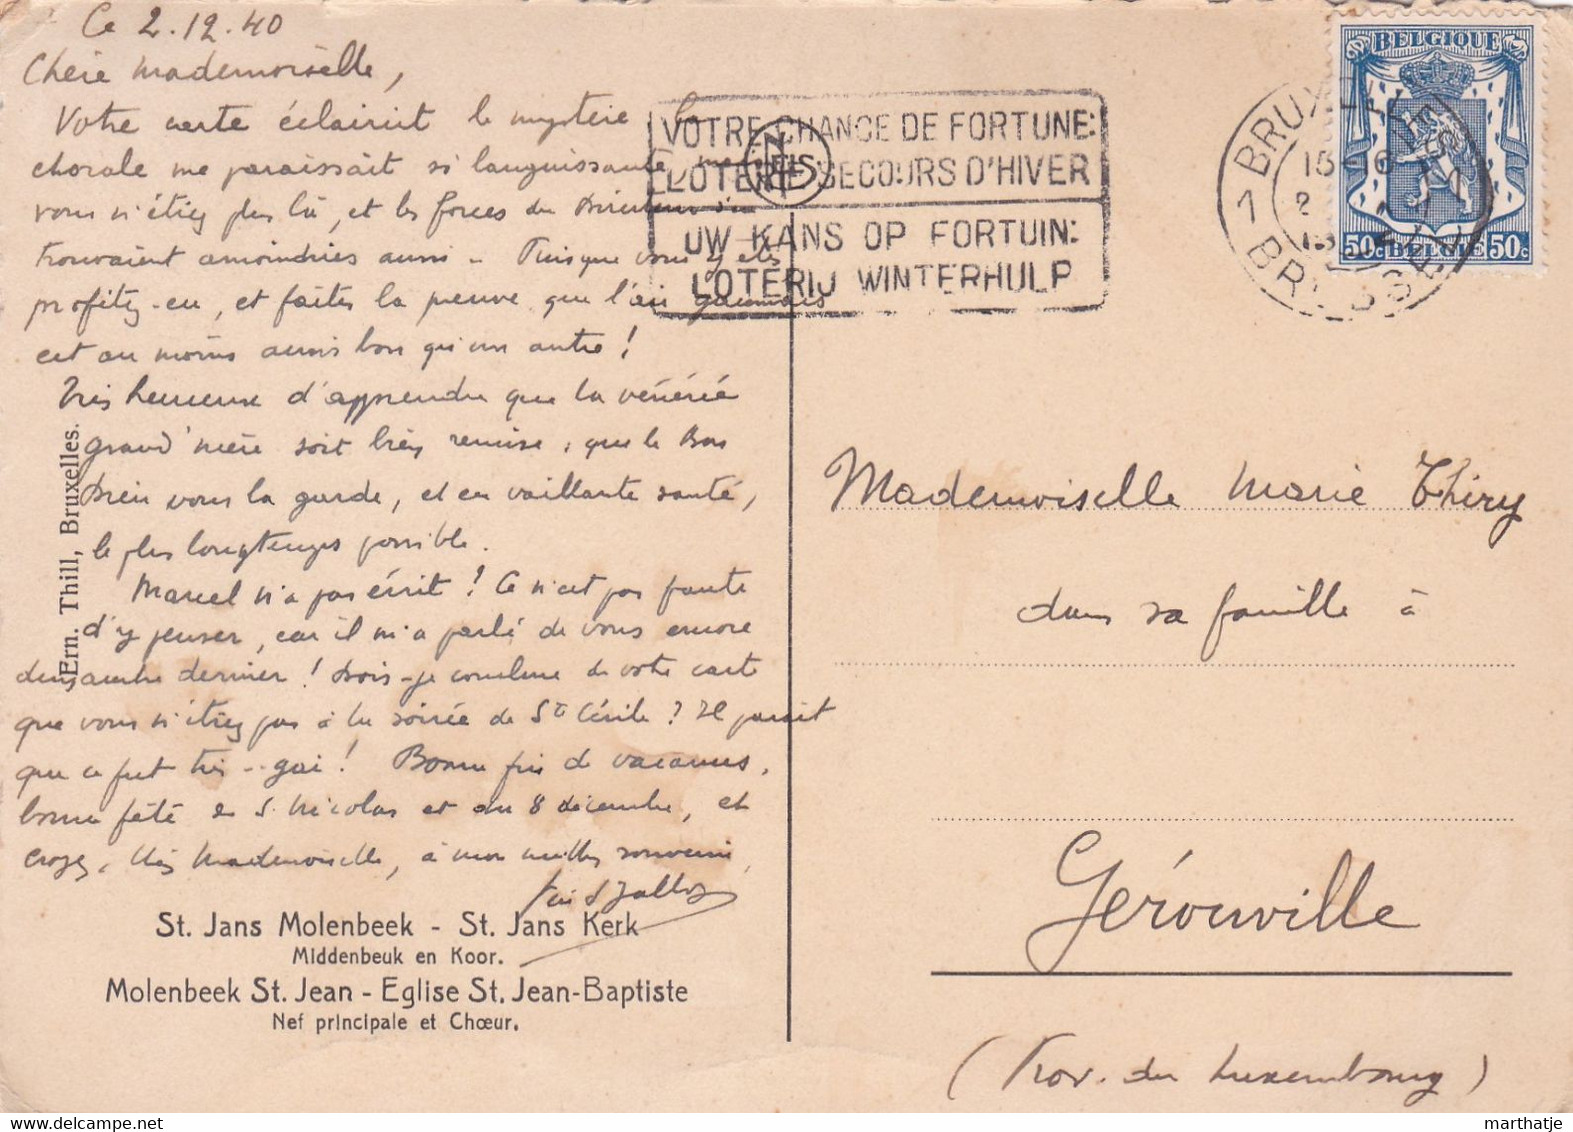 Ce 2.12.40
Chère Mademoiselle,
Votre carte éclaircit le mystère la
chorale me paraissait si languissante, mais
vous n'étiez plus là, et les forces du Directeur s'en
trouvaient amoindries aussi - Puisque vous y êtes
profitez-en, et faites la preuve que l'air gaumais
est au moins aussi bon qu'un autre !
Très heureuse d'apprendre que la vénérée
grand'mère soit bien remise ; que le Bon
Dieu vous la garde, et en vaillante santé,
le plus longtemps possible.
Marcel n'a pas écrit ? Ce n'est pas faute
d'y penser, car il m'a parlé de vous encore
dimanche dernier ! Dois-je conclure de votre carte
que vous n'étiez pas à la soirée de Ste Cécile ? Il paraît
que ce fut très-gai ! Bonne fin de vacances,
bonne fête de S. Nicolas et du 8 décembre, et
croyez, chère Mademoiselle, à mon meilleur souvenir,
Ern. Thill, Bruxelles.
St. Jans Molenbeek - St. Jans Kerk
Middenbeuk en Koor.
Molenbeek St. Jean - Eglise St. Jean-Baptiste
Nef principale et Chœur.
VOTRE CHANCE DE FORTUNE:
LOTERIE SECOURS D'HIVER
UW KANS OP FORTUIN:
LOTERIJ WINTERHULP
1 BRUX
BRUSSEL
BELGIQUE
50c BELGIE 50c
Mademoiselle Marie Thiry
dans sa famille à
Gérouville
(Prov. du Luxembourg)
marthatje